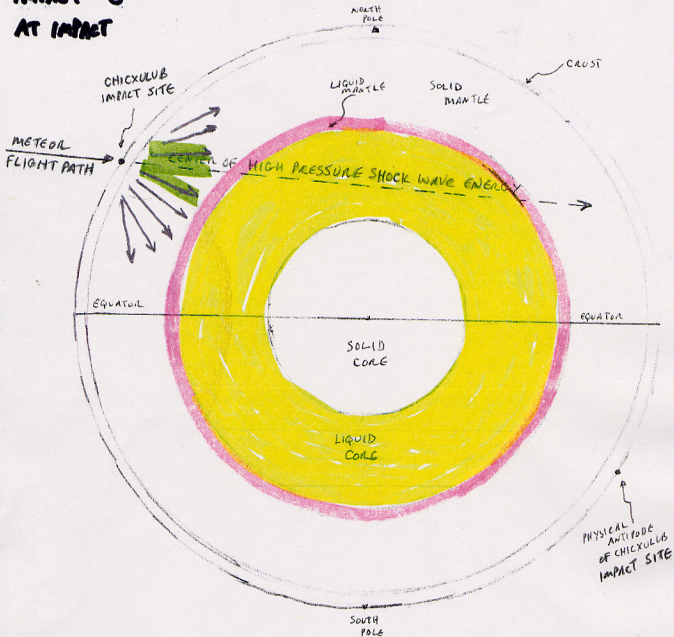 AT IMPACT
NORTH
POLE
CRUST
CHICXULUB
IMPACT SITE
LIQUID
MANTLE
SOLID
MANTLE
METEOR
FLIGHT PATH
CENTER OF HIGH PRESSURE SHOCK WAVE ENERGY
EQUATOR
EQUATOR
SOLID
CORE
LIQUID
CORE
PHYSICAL
ANTIPODE
OF CHICXULUB
IMPACT SITE
SOUTH
POLE